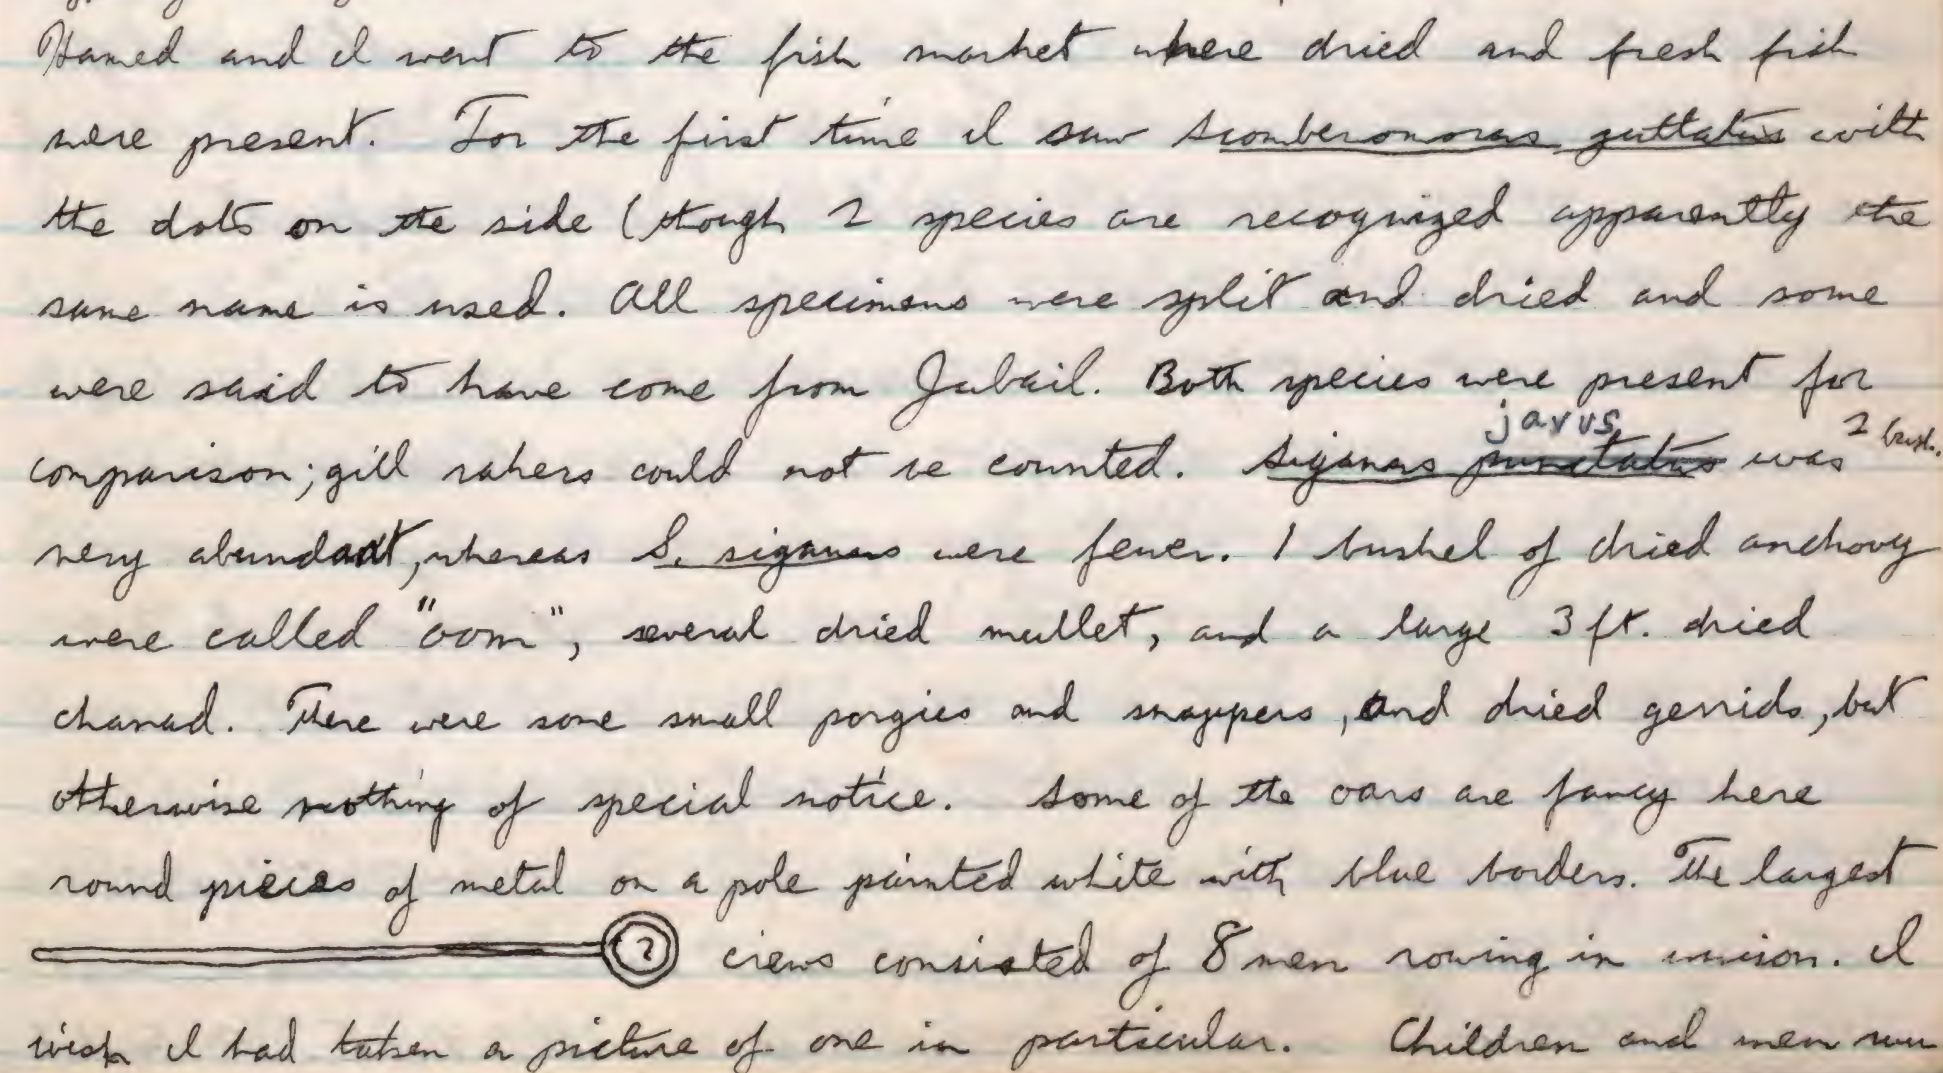 Hamed and I went to the fish market where dried and fresh fish
were present. For the first time I saw Scomberomoras guttatus with
the dots on the side (though 2 species are recognized apparently the
same name is used. All specimens were split and dried and some
were said to have come from Jubail. Both species were present for
javus 2 bush.
comparison; gill rakers could not be counted. Siganus punctatus was
very abundant, whereas S. siganus were fewer. 1 bushel of dried anchovy
were called "oom", several dried mullet, and a large 3 ft. dried
chanad. There were some small porgies and snappers, and dried gerrids, but
otherwise nothing of special notice. Some of the oars are fancy here
round pieces of metal on a pole painted white with blue borders. The largest
? crews consisted of 8 men rowing in unison. I
wish I had taken a picture of one in particular. Children and men